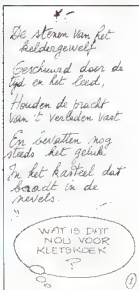 De stenen van het
keldergewelf
Gescheurd door de
tijd en het leed,
Houden de pracht
van 't verleden vast
En bevatten nog
steeds het geluk
In het kasteel dat
baadt in de
nevels.
WAT IS DAT
NOU VOOR
KLETSKOEK
?
1